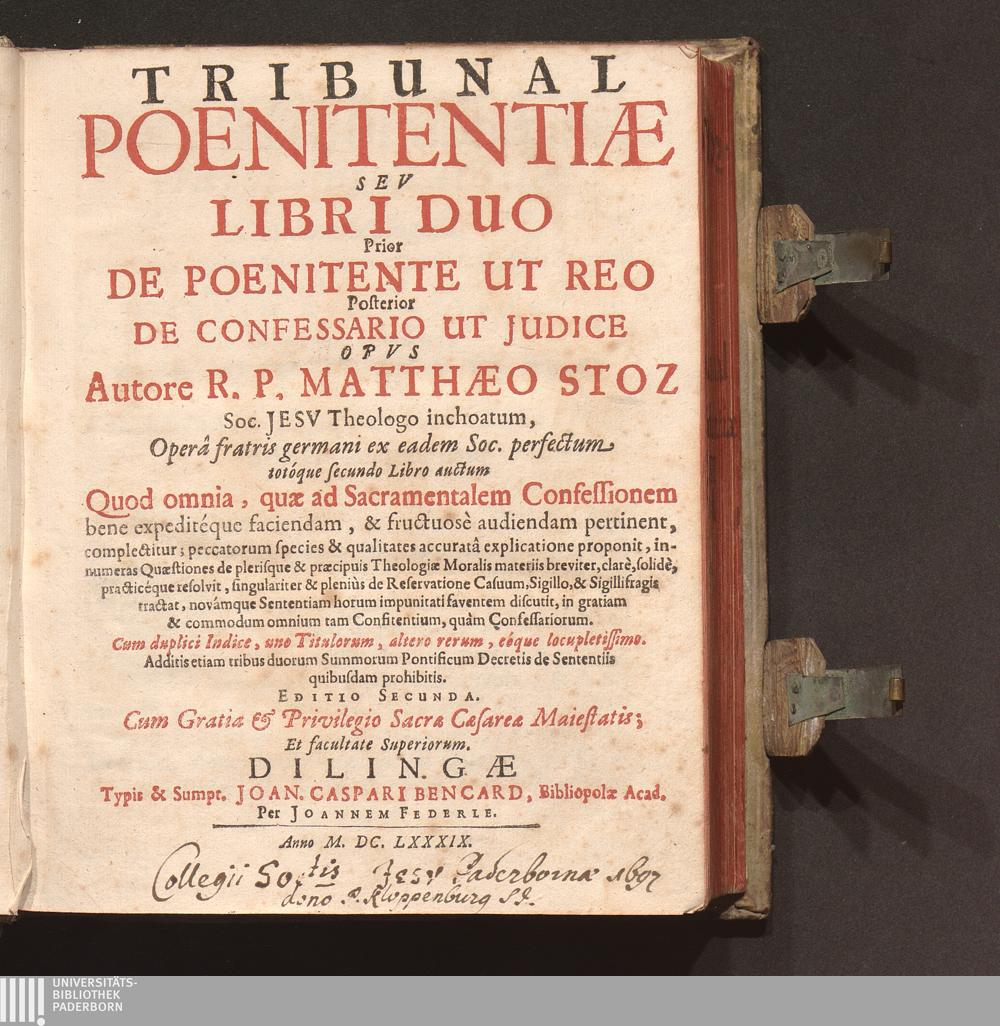 TRIBUNAL
POENITENTIÆ
SEV
LIBRI DUO
Prior
DE POENITENTE UT REO
Poſterior
DE CONFESSARIO UT JUDICE
OPVS
Autore R. P. MATTHÆO STOZ
Soc. JESV Theologo inchoatum,
Operâ fratris germani ex eadem Soc. perfectum
totóque ſecundo Libro auctum
Quod omnia, quæ ad Sacramentalem Confeſſionem
bene expeditéque faciendam, & fructuosè audiendam pertinent,
complectitur; peccatorum ſpecies & qualitates accuratâ explicatione proponit, in-
numeras Quæſtiones de pleriſque & præcipuis Theologiæ Moralis materiis breviter, clarè, ſolidè,
practicéque reſolvit, ſingulariter & pleniùs de Reſervatione Caſuum, Sigillo, & Sigillifragis
tractat, novámque Sententiam horum impunitati faventem diſcutit, in gratiam
& commodum omnium tam Confitentium, quàm Confeſſariorum.
Cum duplici Indice, uno Titulorum, altero rerum, eóque locupletiſſimo.
Additis etiam tribus duorum Summorum Pontificum Decretis de Sententiis
quibuſdam prohibitis.
EDITIO SECUNDA.
Cum Gratia & Privilegio Sacræ Cæſareæ Maieſtatis;
Et facultate Superiorum.
DILINGÆ
Typis & Sumpt. JOAN. CASPARI BENCARD, Bibliopolæ Acad.
Per JOANNEM FEDERLE.
Anno M. DC. LXXXIX.
Collegii Soctis Jesv Paderbornæ 1697
dono P. Kloppenburg SJ.
UNIVERSITÄTS-
BIBLIOTHEK
PADERBORN